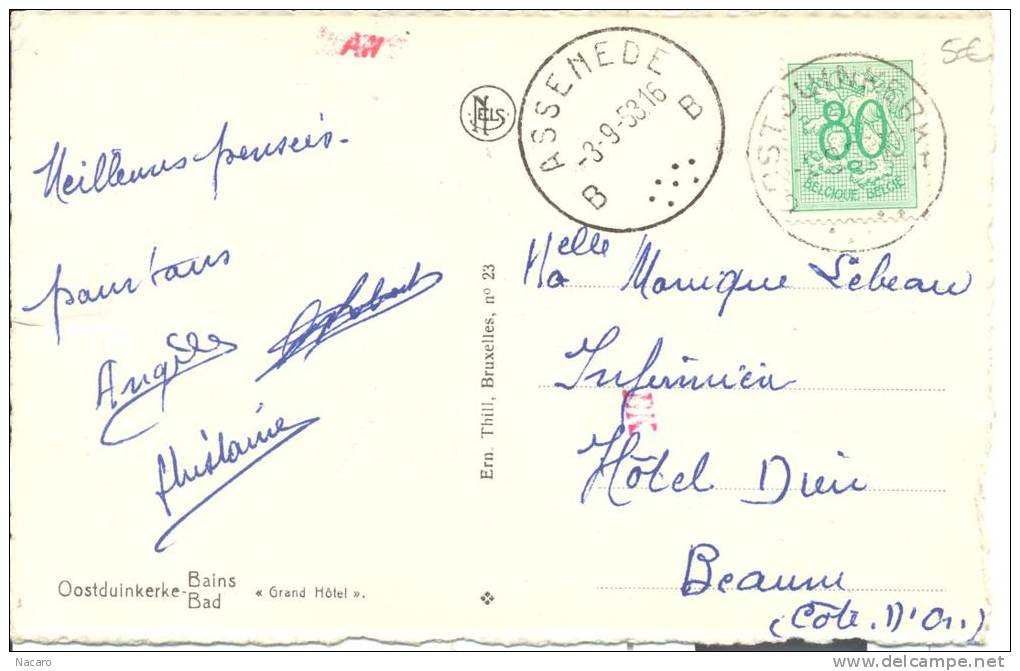 AN
50€
NELS
ASSENEDE
-3-9-53.16
B B
OOSTDUINKERKE
80
BELGIQUE BELGIË
Meilleures pensées.
pour tous
Angèle
Hubert
Ghislaine
Oostduinkerke-Bains
Bad
« Grand Hôtel ».
Ern. Thill, Bruxelles, nº 23
Melle Monique Lebeau
Infirmière
Hôtel Dieu
Beaune
(Côte. D'Or.)
Nacaro
delcampe.net